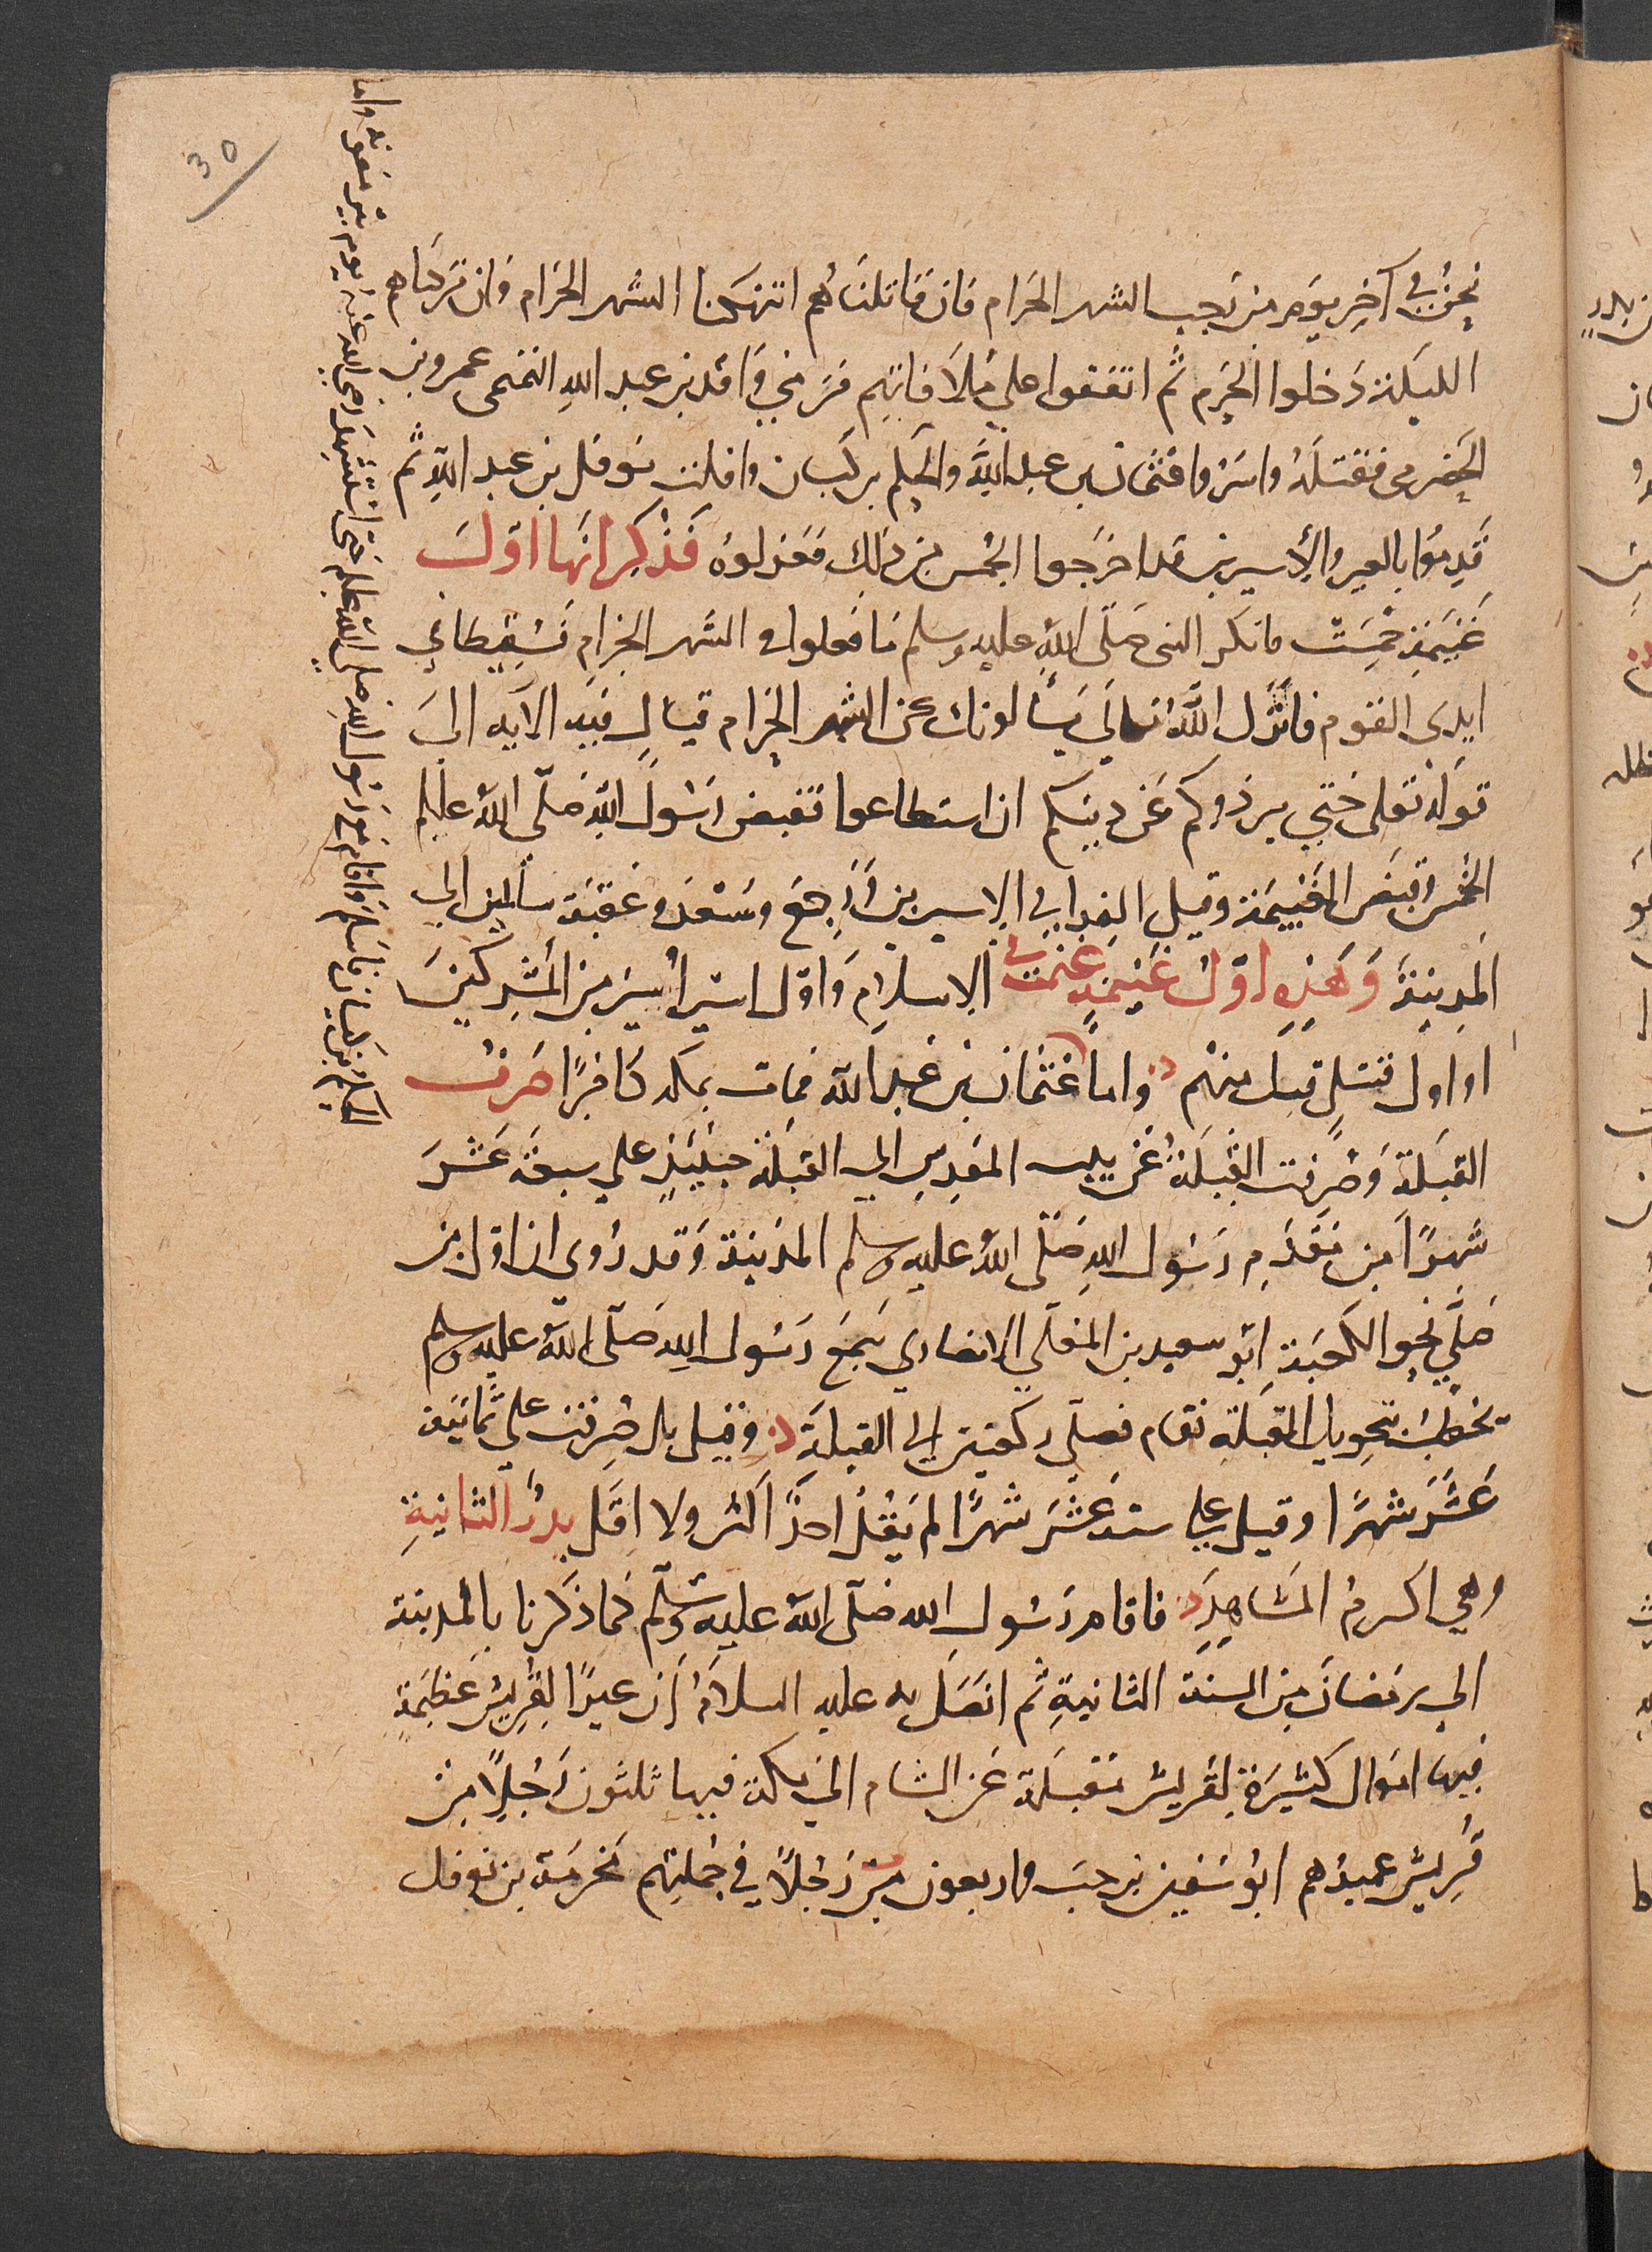 30
نحن في آخر يوم من رجب الشهر الحرام فان قاتلناهم انتهكنا الشهر الحرام وان تركناهم
الليلة دخلوا الحرم ثم اتفقوا على ملاقاتهم فرمى واقد بن عبد الله التميمي عمرو بن
الحضرمي فقتله واسروا عثمان بن عبد الله والحكم بن كيسان وافلت نوفل بن عبد الله ثم
قدموا بالعير والأسيرين قد اخرجوا الخمس من ذلك فعزلوه فذكر انها اول
غنيمة خمست فانكر النبي صلى الله عليه وسلم ما فعلوا في الشهر الحرام فسقط في
ايدي القوم فانزل الله تعالى يسألونك عن الشهر الحرام قتال فيه الآية الى
قوله تعلى حتى يردوكم عن دينكم ان استطاعوا فقبض رسول الله صلى الله عليه وسلم
الخمس وقبض الغنيمة وقبل الفدا في الاسيرين ورجع وسعد وعقبة سالمين الى
المدينة وهذه اول غنيمة غنمت في الاسلام واول اسير أسر من المشركين
او اول قتيل قتل منهم واما عثمان بن عبد الله فمات بمكة كافرا صرف
القبلة وصرفت القبلة عن بيت المقدس الى القبلة حينئذ على سبعة عشر
شهرا من مقدم رسول الله صلى الله عليه وسلم المدينة وقد روي ان اول من
صلى نحو الكعبة ابو سعيد بن المعلى الانصاري سمع رسول الله صلى الله عليه وسلم
يخطب بتحويل القبلة فقام فصلى ركعتين الى القبلة وقيل بل صرفت على ثمانية
عشر شهرا وقيل على ستة عشر شهرا لم يقل احد اكثر ولا اقل بدر الثانية
وهي اكرم المشاهد فاقام رسول الله صلى الله عليه وسلم كما ذكرنا بالمدينة
الى رمضان من السنة الثانية ثم اتصل به عليه السلام أن عيرا لقريش عظيمة
فيها اموال كثيرة لقريش مقبلة عن الشام الى مكة فيها ثلثون رجلا من
قريش عميدهم ابو سفين بن حرب واربعون رجلا في جملتهم مخرمة بن نوفل
الحكم بن كيسان فاسلم واقام مع رسول الله صلى الله عليه وسلم حتى استشهد رضي الله عنه يوم بير معونة واما